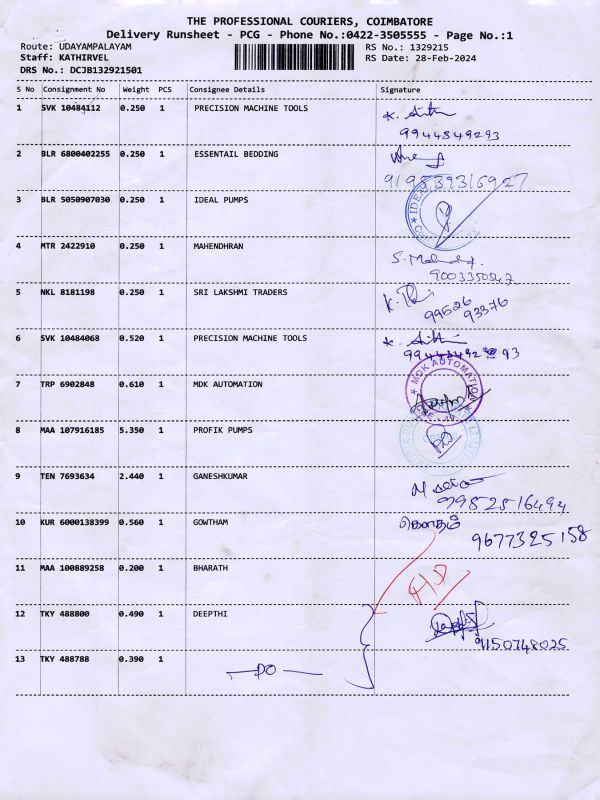 THE PROFESSIONAL COURIERS, COIMBATORE
Delivery Runsheet - PCG - Phone No.:0422-3505555 - Page No.:1
Route: UDAYAMPALAYAM RS No.: 1329215
Staff: KATHIRVEL RS Date: 28-Feb-2024
DRS No.: DCJB132921501
S No Consignment No Weight PCS Consignee Details Signature
1 SVK 10484112 0.250 1 PRECISION MACHINE TOOLS
9944849293
2 BLR 6800402255 0.250 1 ESSENTAIL BEDDING
919539316927
3 BLR 5050907030 0.250 1 IDEAL PUMPS
4 MTR 2422910 0.250 1 MAHENDHRAN
5 NKL 8181198 0.250 1 SRI LAKSHMI TRADERS
99526
93376
6 SVK 10484068 0.520 1 PRECISION MACHINE TOOLS
7 TRP 6902848 0.610 1 MDK AUTOMATION
MDK AUTOMATION
8 MAA 107916185 5.350 1 PROFIK PUMPS
9 TEN 7693634 2.440 1 GANESHKUMAR
9952516494
10 KUR 6000138399 0.560 1 GOWTHAM கௌதம்
9677325158
11 MAA 100889258 0.200 1 BHARATH
12 TKY 488800 0.490 1 DEEPTHI
9150748025
13 TKY 488788 0.390 1
DO